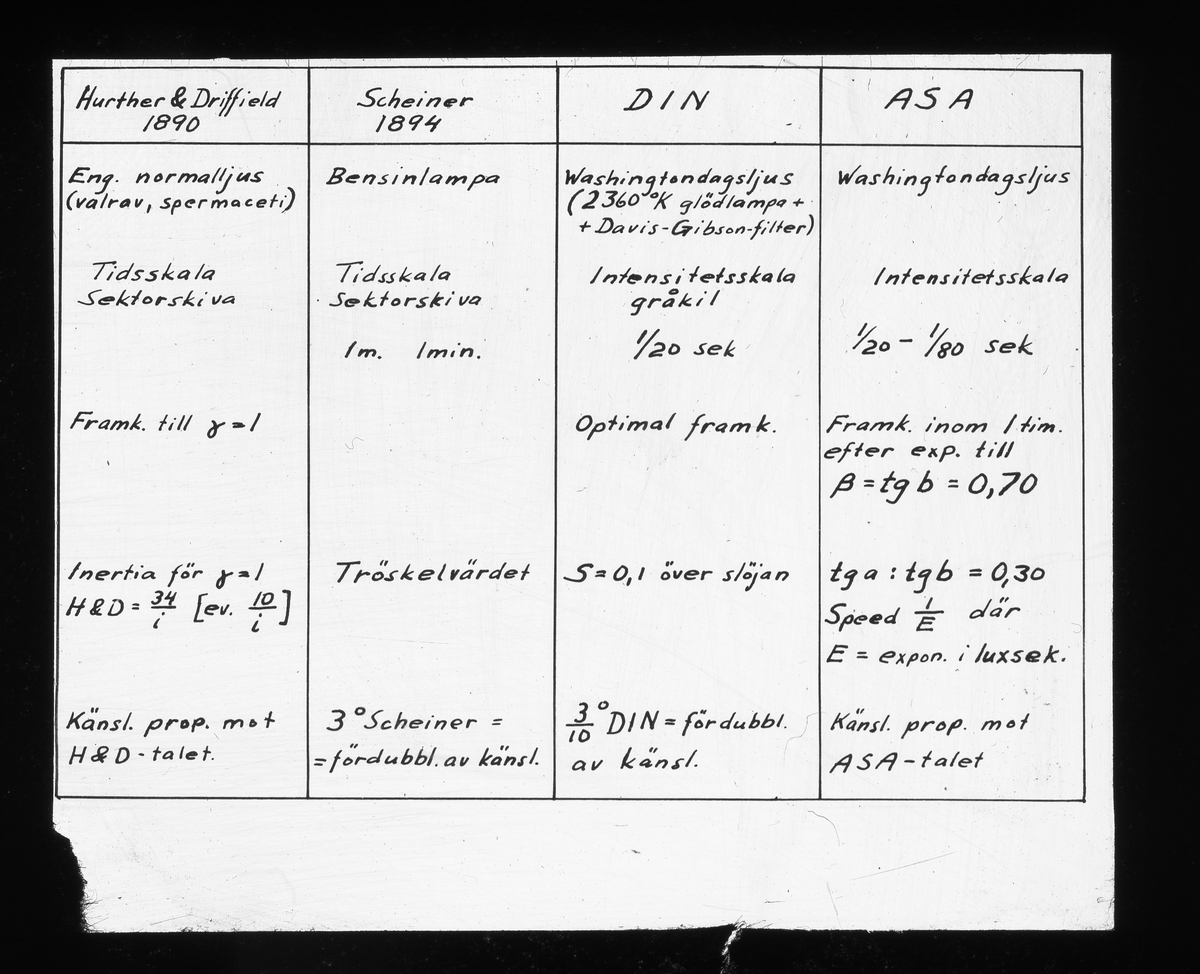 Hurther & Driffield
1890
Eng. normalljus
(valrav, spermaceti)
Tidsskala
Sektorskiva
Framk. till γ=1
Inertia för γ=1
H&D = 34/i [ev. 10/i]
Känsl. prop. mot
H&D-talet.
Scheiner
1894
Bensinlampa
Tidsskala
Sektorskiva
1m. 1min.
Tröskelvärdet
3° Scheiner =
= fördubbl. av känsl.
DIN
Washingtondagsljus
(2360°K glödlampa +
+ Davis-Gibson-filter)
Intensitetsskala
gråkil
1/20 sek
Optimal framk.
S=0,1 över slöjan
3/10° DIN = fördubbl.
av känsl.
ASA
Washingtondagsljus
Intensitetsskala
1/20 - 1/80 sek
Framk. inom 1 tim.
efter exp. till
β = tg b = 0,70
tg a : tg b = 0,30
Speed 1/E där
E = expon. i luxsek.
Känsl. prop. mot
ASA-talet